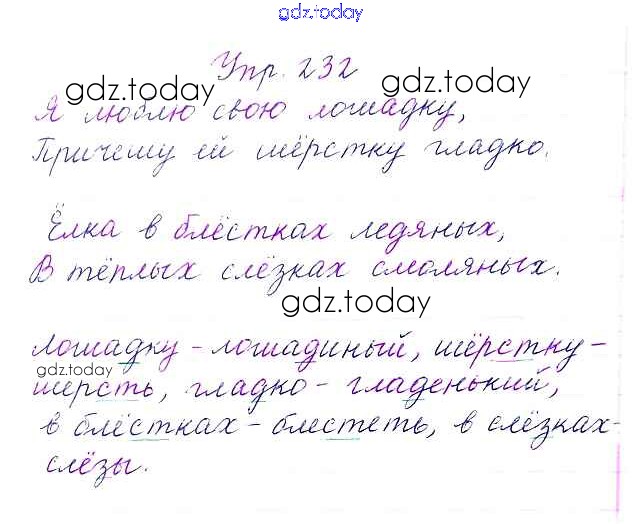 gdz.today
Упр. 232
gdz.today gdz.today
Я люблю свою лошадку,
Причешу ей шёрстку гладко.
Ёлка в блёстках ледяных,
В тёплых слёзках смоляных.
gdz.today
Лошадку - лошадиный, шёрстку -
gdz.today
шерсть, гладко - гладенький,
в блёстках - блестеть, в слёзках-
слёзы.